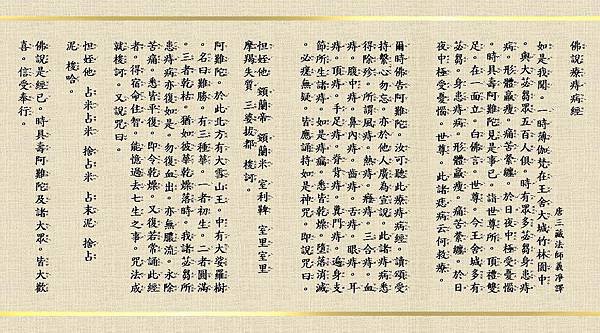 佛說療痔病經
唐三藏法師義淨譯
如是我聞。一時薄伽梵在王舍大城竹林園中
。與大苾芻眾五百人俱。時有眾多苾芻身患痔
病。形體羸瘦。痛苦縈纏。於日夜中極受憂惱
。時具壽阿難陀見是事已。詣世尊所。頂禮雙
足。在一面立。白佛言。世尊。今王舍城多有
苾芻。身患痔病。形體羸瘦。痛苦縈纏。於日
夜中極受憂惱。世尊。此諸痔病云何救療。
爾時佛告阿難陀。汝可聽此療痔病經。讀誦受
持繫心勿忘。亦於他人廣為宣說。此諸痔病悉
得除殄。所謂風痔。熱痔。癊痔。三合痔。血
痔。腹中痔。鼻內痔。齒痔。舌痔。眼痔。耳
痔。頂痔。手足痔。脊背痔。糞門痔。遍身支
節所生諸痔。如是痔瘺。悉皆乾燥。墮落消滅
。必差無疑。皆應誦持如是神咒。即說咒曰。
怛姪他 頞闌帝 頞闌米 室利鞞 室里室里
摩羯失質。三婆跋都 梭訶。
阿難陀。於此北方有大雪山王。中有大娑羅樹
。名曰難勝。有三種華。一者初生。二者圓滿
。三者乾枯。猶如彼華乾燥落時。我諸苾芻所
患痔病亦復如是。勿復血出。亦無膿流。永除
苦痛。悉皆平復。即令乾燥。又復若常誦此經
者。得宿命住智。能憶過去七生之事。咒法成
就梭訶。又說咒曰。
怛姪他 占米占米 捨占米 占末泥 捨占
泥 梭哈。
佛說是經已。時具壽阿難陀及諸大眾。皆大歡
喜。信受奉行。